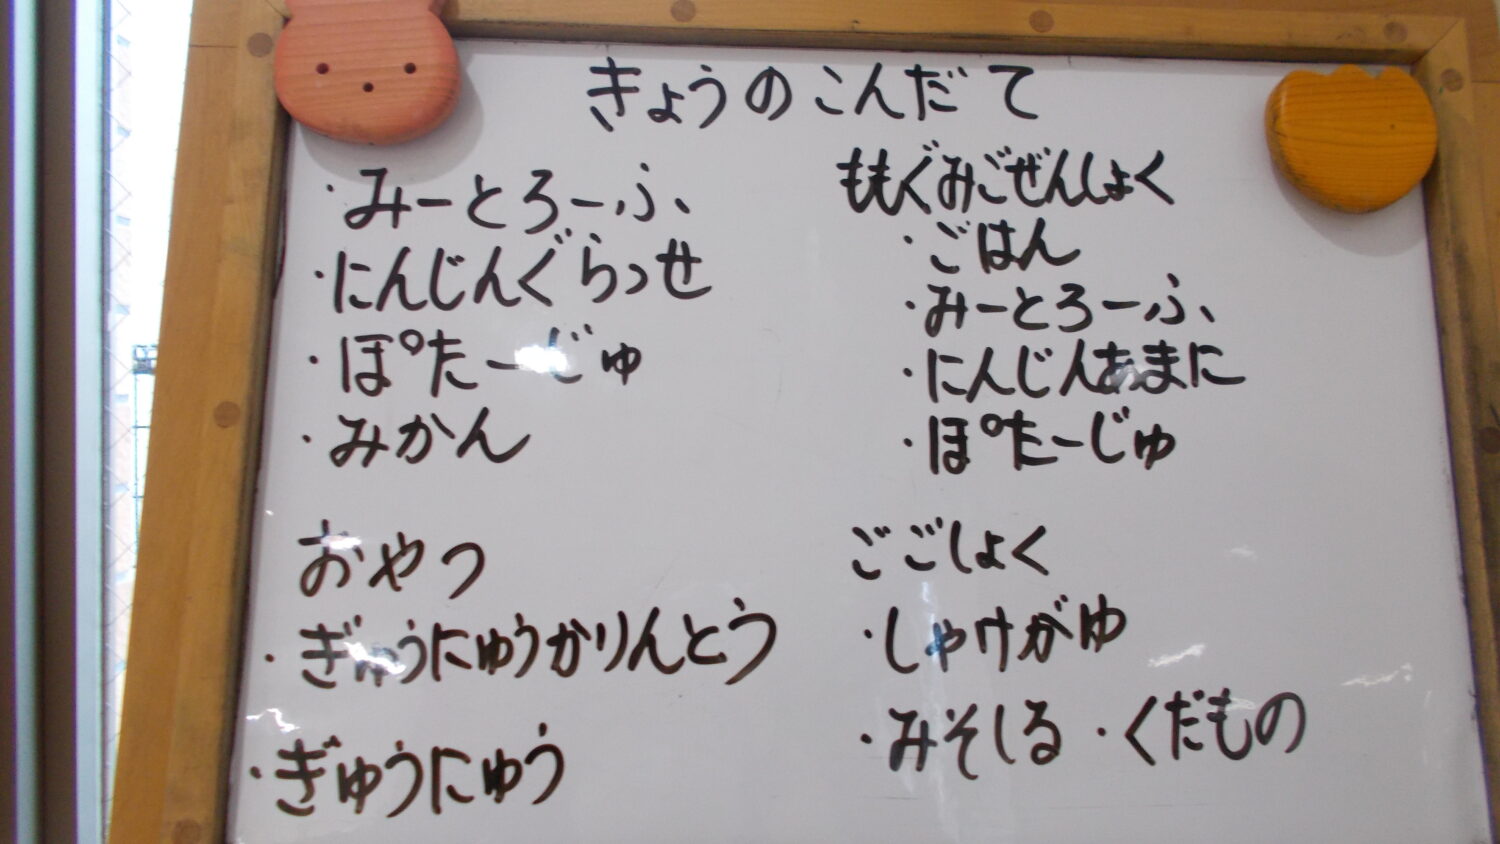 きょうのこんだて
・みーとろーふ
・にんじんぐらっせ
・ぽたーじゅ
・みかん
おやつ
・ぎゅうにゅうかりんとう
・ぎゅうにゅう
ももぐみごぜんしょく
・ごはん
・みーとろーふ
・にんじんあまに
・ぽたーじゅ
ごごしょく
・しゃけがゆ
・みそしる ・くだもの